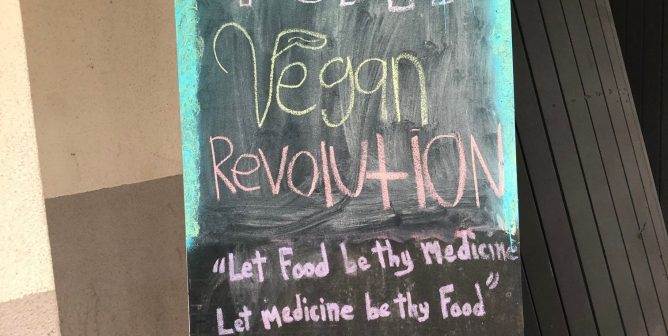 Vegan
REVOLUTION
"Let Food be thy medicine
Let medicine be thy Food"